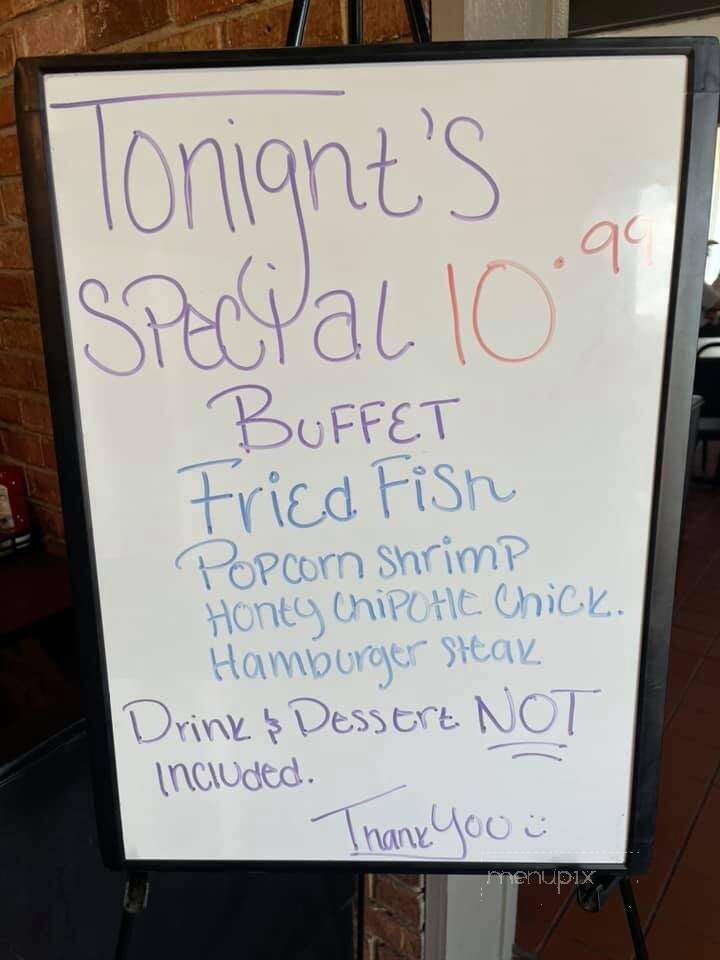 Tonight's
Special 10.99
BUFFET
Fried Fish
Popcorn Shrimp
Honey Chipotle Chick.
Hamburger Steak
Drink & Dessert NOT
included.
Thank You :)
menupix